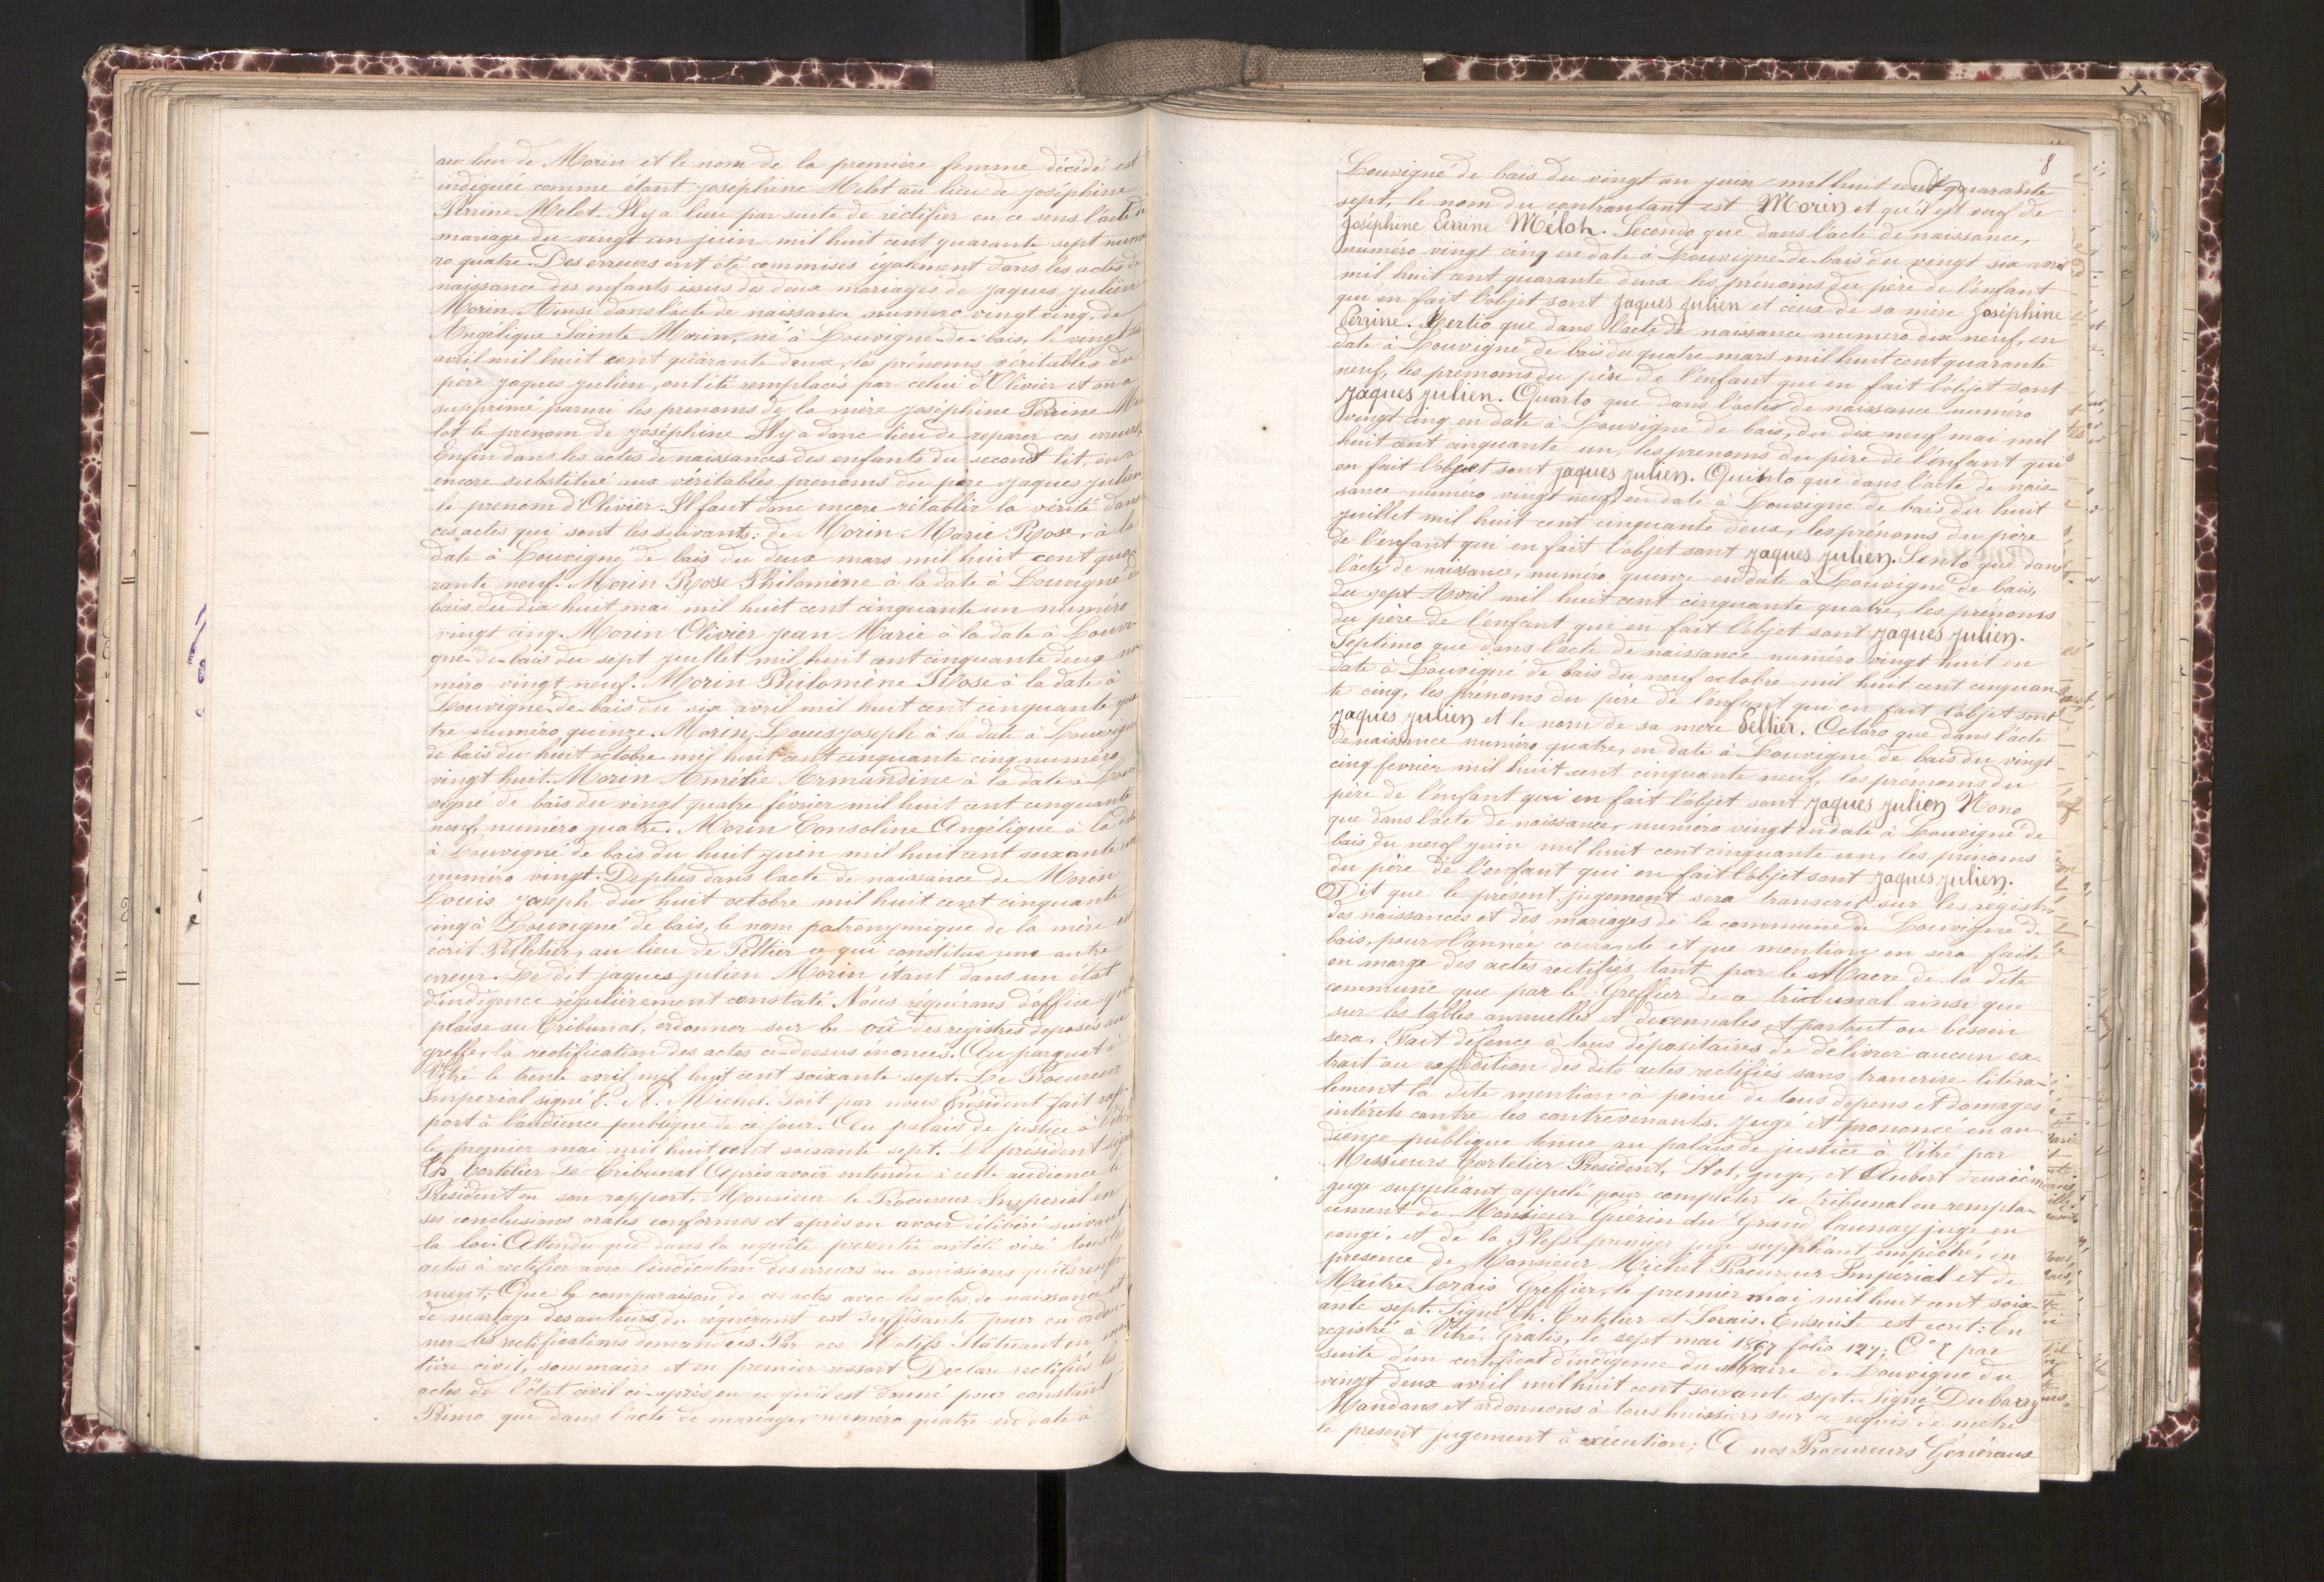 au lieu de Morin et le nom de la première femme décédé est
indiquée comme étant joséphine Melot au lieu de joséphine
Perrine Melot. Il y a lieu par suite de réctifier en ce sens l'acte de
mariage du vingt un juin mil huit cent quarante sept numé
ro quatre. Des erreurs ont été commises également dans les actes de
naissance des enfants issus des deux mariages de jaques julien
Morin. Ainsi dans l'acte de naissance numero vingt cinq, de
Angélique Sainte Morin, né à Louvigné-de-bais, le vingt six
avril mil huit cent quarante deux, les prénoms véritables du
père jaques julien, ont été remplacés par celui d'Olivier et on a
supprimé parmi les prenoms de la mère joséphine Perrine Me
lot le prenom de joséphine Il y a donc lieu de reparer ces erreurs,
Enfin dans les actes de naissances des enfants du second lit, on a
encore substitué aux véritables prenoms du père jaques julien
le prenom d'Olivier. Il faut donc encore rétablir la vérité dans
ces actes qui sont les suivants: de Morin Marie Rose, à la
date à Louvigné de bais du deux mars mil huit cent qua
rante neuf. Morin Rose Philomène à la date à Louvigné de
bais du dix huit mai mil huit cent cinquante un numéro
vingt cinq. Morin Olivier jean Marie à la date à Louvi
gné-de-bais du sept juillet mil huit cent cinquante deux nu
méro vingt neuf. Morin Philomène Rose à la date à
Louvigné-de-bais du six avril mil huit cent cinquante qua
tre numéro quinze. Morin, Louis joseph à la date à Louvigné
de bais du huit octobre mil huit cent cinquante cinq numéro
vingt huit. Morin Amélie Armandine à la date à Lou
vigné de bais du vingt quatre février mil huit cent cinquante
neuf, numéro quatre. Morin Consoline Angélique à la date
à Louvigné de bais du huit juin mil huit cent soixante un
numéro vingt. De plus dans l'acte de naissance de Morin
Louis joseph du huit octobre mil huit cent cinquante
cinq à Louvigné de bais, le nom patronymique de la mère est
écrit Pelletier, au lieu de Peltier ce qui constitue une autre
erreur. Le dit jaques julien Morin étant dans un état
d'indigence régulièrement constaté Nous réquérons d'office qu'il
plaise au Tribunal, ordonner sur le vû des registres déposés au
greffe, la rectification des actes ci-dessus énoncés. Au parquet à
Vitré le trente avril mil huit cent soixante sept. Le Procureur
Imperial signé E. A. Michel. Soit par nous Président fait rap
port à l'audience publique de ce jour. Au palais de justice à Vitré
le premier mai mil huit cent soixante sept. Le président signé
Ch Cortelier Le Tribunal Après avoir entendu à cette audience le
Président en son rapport. Monsieur le Procureur Impérial en
ses conclusions orales conformes et après en avoir délibéré suivant
la loi. Attendu que dans la requête presentée ont été visé tous les
actes à rectifier avec l'indication des erreurs ou omissions qu'ils renfer
ment; Que la comparaison de ces actes avec les actes de naissance et
de mariage des auteurs du réquérant est suffisante pour en ordon
ner les rectifications demandées Par ces Motifs Statuant en ma
tière civil, sommaire et en premier ressort Déclare rectifiés les
actes de l'état civil ci-après en ce qu'il est donné pour constant
Primo que dans l'acte de mariage, numéro quatre en date à
8
Louvigné de bais du vingt un juin mil huit cent quarante
sept, le nom du contractant est Morin et qu'il est veuf de
joséphine Perrine Mélot. Secondo que dans l'acte de naissance,
numéro vingt cinq en date à Louvigné-de-bais du vingt six avril
mil huit cent quarante deux les prénoms du père de l'enfant
qui en fait l'objet sont jaques julien et ceux de sa mère joséphine
Perrine. Tertio que dans l'acte de naissance numero dix neuf, en
date à Louvigné de bais du quatre mars mil huit cent quarante
neuf, les prenoms du père de l'enfant qui en fait l'objet sont
jaques julien. Quarto que dans l'acte de naissance numéro
vingt cinq en date à Louvigné de bais, du dix neuf mai mil
huit cent cinquante un, les prenoms du père de l'enfant qui
en fait l'objet sont jaques julien. Quinto que dans l'acte de nais-
sance numéro vingt neuf, en date à Louvigné de bais du huit
juillet mil huit cent cinquante deux, les prénoms du père
de l'enfant qui en fait l'objet sont jaques julien. Sento que dans
l'acte de naissance, numéro quinze en date à Louvigné de bais,
du sept Avril mil huit cent cinquante quatre, les prenoms
du père de l'enfant qui en fait l'objet sont jaques julien.
Septimo que dans l'acte de naissance numéro vingt huit en
date à Louvigné de bais du neuf octobre mil huit cent cinquan
te cinq, les prenoms du père de l'enfant qui en fait l'objet sont
jaques julien et le nom de sa mere Peltier. Octavo que dans l'acte
de naissance numéro quatre, en date à Louvigné de bais du vingt
cinq fevrier mil huit cent cinquante neuf, les prenoms du
père de l'enfant qui en fait l'objet sont jaques julien Nono
que dans l'acte de naissance, numéro vingt en date à Louvigné de
bais du neuf juin mil huit cent cinquante un, les prénoms
du père de l'enfant qui en fait l'objet sont jaques julien.
Dit que le présent jugement sera transcrit sur les registres
des naissances et des mariages de la commune de Louvigné de
bais, pour l'année courante et que mention en sera faite
en marge des actes rectifiés, tant par le Maire de la dite
commune que par le Greffier de ce tribunal ainsi que
sur les tables annuelles et décennales et partout ou besoin
sera, Fait défence à tous dépositaires de délivrer aucun ex-
trait ou expédition des dits actes rectifiés sans trancrire litéra-
lement la dite mention à peine de tous depens et domages
intérêts contre les contrevenants. jugé et prononcé en au-
dience publique tenue au palais de justice à Vitré par
Messieurs Cortelier President, Stot, juge, et Aubert deuxième
juge suppléant, appelé pour compléter le tribunal en rempla-
cement de Monsieur Guérin du Grand Launay juge en
congé, et de la Plesse premier juge suppléant empêché, en
presence de Monsieur Michel Procureur Impérial et de
Maitre Lorais Greffier, le premier mai mil huit cent soix-
ante sept. Signé Ch. Cortelier et Lorais. Ensuite est ecrit: En
registré à Vitré, Gratis, le sept mai 1867 folio 127; par
suite d'un certificat d'indigence du Maire de Louvigné du
vingt deux avril mil huit cent soixante sept. Signé Dubarry
Mandons et ordonnons à tous huissiers sur ce requis de metre
le present jugement à exécution; A nos Procureurs Généraux